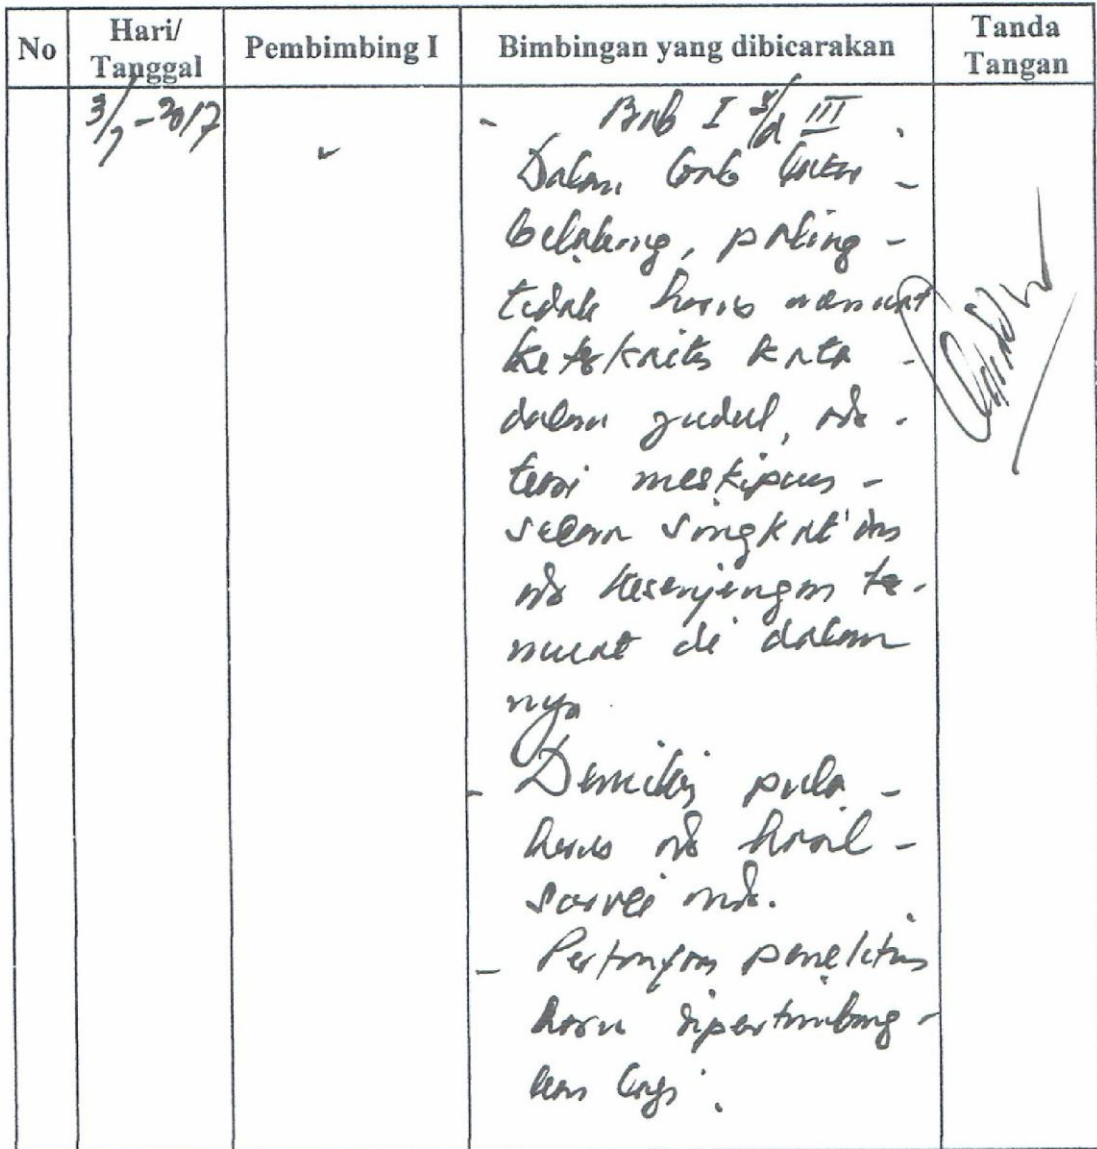 No
Hari/
Tanggal
Pembimbing I
Bimbingan yang dibicarakan
Tanda
Tangan
3/7-2017
- Bab I s/d III.
Dalam latar -
belakang, paling -
tidak harus memuat
keterkaitan kata -
dalam judul, ada -
teori meskipun -
secara singkat dan
ada kesenjangan te-
muat di dalam
nya
- Demikian pula -
harus ada hasil -
survei
- Pertanyaan penelitian
harus dipertimbang-
kan lagi.